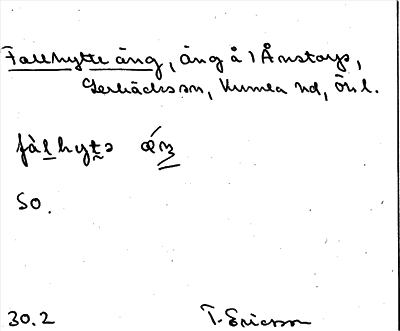 Fallhytte äng, äng å 1 Ånstorp,
Gerbäcks sn, Kumla hd, Ö n l.
fàlhytə ǽŋ
So.
30.2 T. Ericson